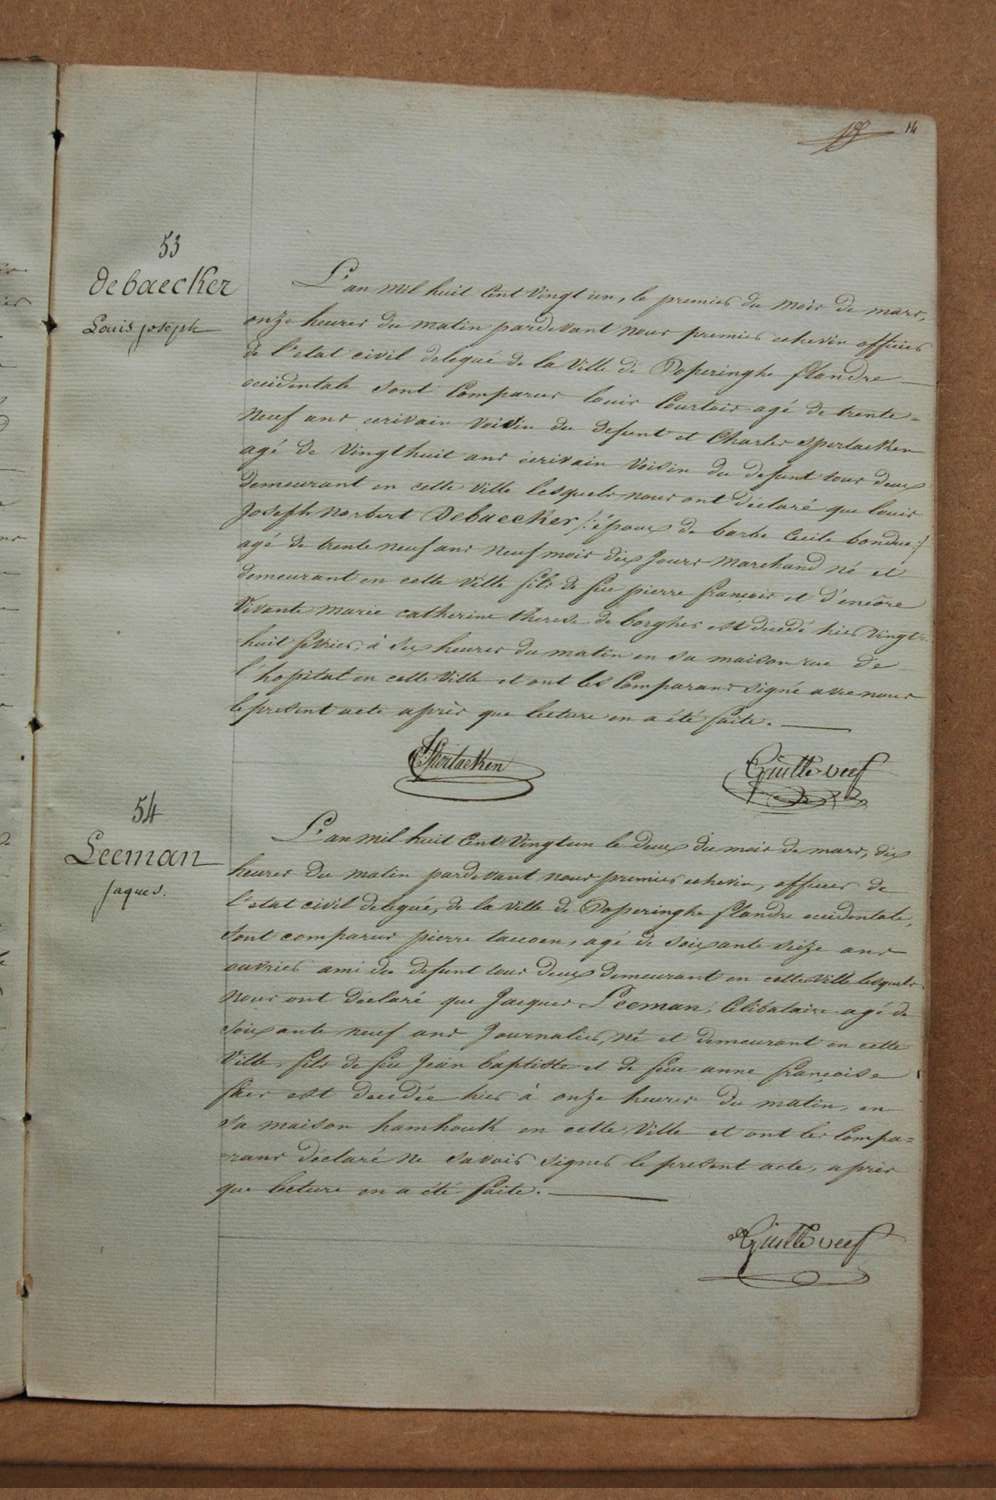 14
53
Debaecker
Louis joseph
L'an mil huit Cent Vingt un, le premier du mois de mars,
onze heures du matin pardevant nous premier echevin officier
de l'etat civil delegué de la Ville de Poperinghe flandre
occidentale sont Comparus louis Courtois agé de trente =
Neuf ans ecrivain voisin du defunt et Charles Sperlaeken
agé de Vingthuit ans ecrivain Voisin du defunt tous deux
demeurant en cette Ville lesquels nous ont déclaré que louis
Joseph Norbert Debaecker /: époux de barbe Cecile bondue :/
agé de trente neuf ans Neuf mois dix jours Marchand né et
demeurant en cette Ville fils de feu pierre françois et d'encore
Vivante Marie catherine therese de borgher est décédé hier Vingt =
huit fevrier, à six heures du matin en sa maison rue de
l'hopital en cette Ville et ont les Comparans signé avec nous
le present acte après que lecture en a été faite.
C Sperlaeken
54
Leeman
jaques.
L'an mil huit Cent Vingtun le deux du mois de mars, dix
heures du matin pardevant nous premier echevin, officier de
l'etat civil delegué, de la Ville de Poperinghe flandre occidentale,
sont comparus pierre taccoen, agé de soixante seize ans
ouvrier ami du defunt tous deux demeurant en cette Ville lesquels
Nous ont déclaré que Jacques Leeman, Celibataire agé de
soixante neuf ans Journalier, Né et demeurant en cette
Ville, fils de feu Jean baptiste et de feue anne françoise
est decedée hier à onze heures du matin, en
sa maison hamhouck en cette Ville et ont les Compa=
rans déclaré Ne savoir signer le present acte, après
que lecture en a été faite.